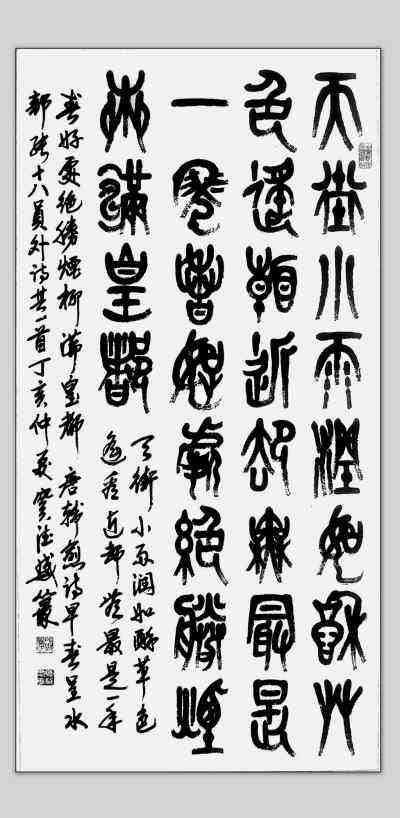 天街小雨潤如酥艸
色遙看近却無最是
一年春好處絕勝煙
柳滿皇都
天街小雨润如酥草色
遥看近却無最是一年
春好處绝勝煙柳满皇都 唐韓愈詩早春呈水
部张十八員外詩共一首丁亥仲夏篆